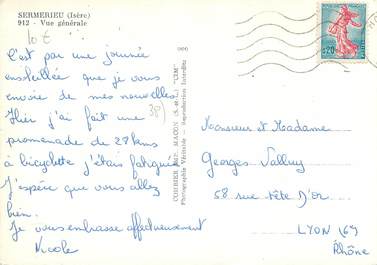 SERMERIEU (Isère)
912 - Vue générale
10 €
C'est par une journée
ensoleillée que je vous
envoie de mes nouvelles
Hier j'ai fait une
38)
promenade de 28 kms
à bicyclette j'étais fatiguée
J'espère que vous allez
bien.
Je vous embrasse affectueusement
Nicole
COMBIER IMP. MACON (S.-et-L.) "CIM"
Photographie Véritable - Reproduction Interdite
0,20
Monsieur et Madame
Georges Valluy
58 rue tête D'or
LYON (6)
Rhône